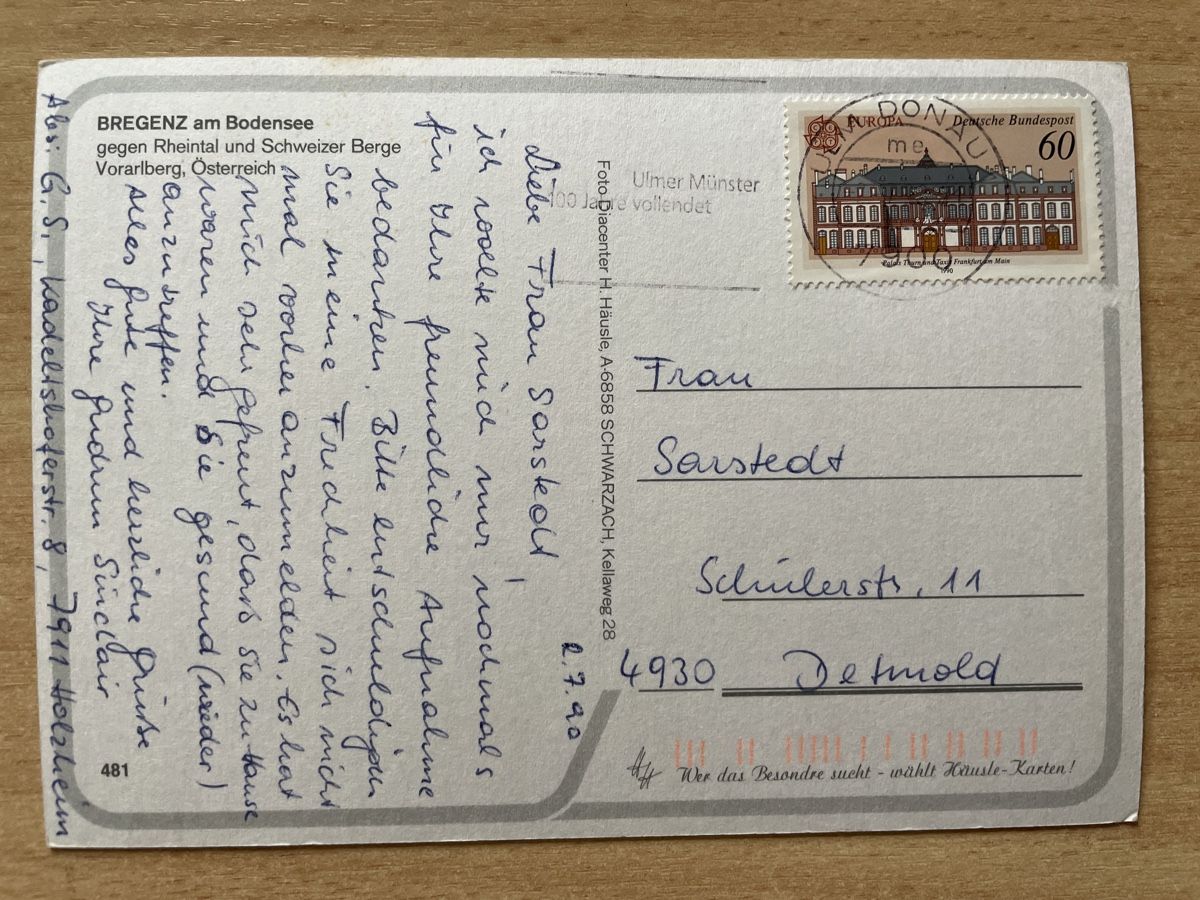 BREGENZ am Bodensee
gegen Rheintal und Schweizer Berge
Vorarlberg, Österreich
2.7.90
Liebe Frau Sarstedt!
ich wollte mich nur nochmals
für Ihre freundliche Aufnahme
bedanken. Bitte entschuldigen
Sie meine Frechheit sich nicht
mal vorher anzumelden. Es hat
mich sehr gefreut, dass Sie zu Hause
waren und Sie gesund (wieder)
anzutreffen.
Alles Gute und herzliche Grüße
Ihre Gudrun Sinclair
Abs: G. S., Kadeltshoferstr. 8, 7911 Holzheim
481
Foto Diacenter H. Häusle, A-6858 SCHWARZACH, Kellaweg 28
Ulmer Münster
100 Jahre vollendet
ULM, DONAU
me
7900
EUROPA Deutsche Bundespost
60
Palais Thurn und Taxis Frankfurt am Main
1990
Frau
Sarstedt
Schülerstr. 11
4930 Detmold
Wer das Besondre sucht - wählt Häusle-Karten!